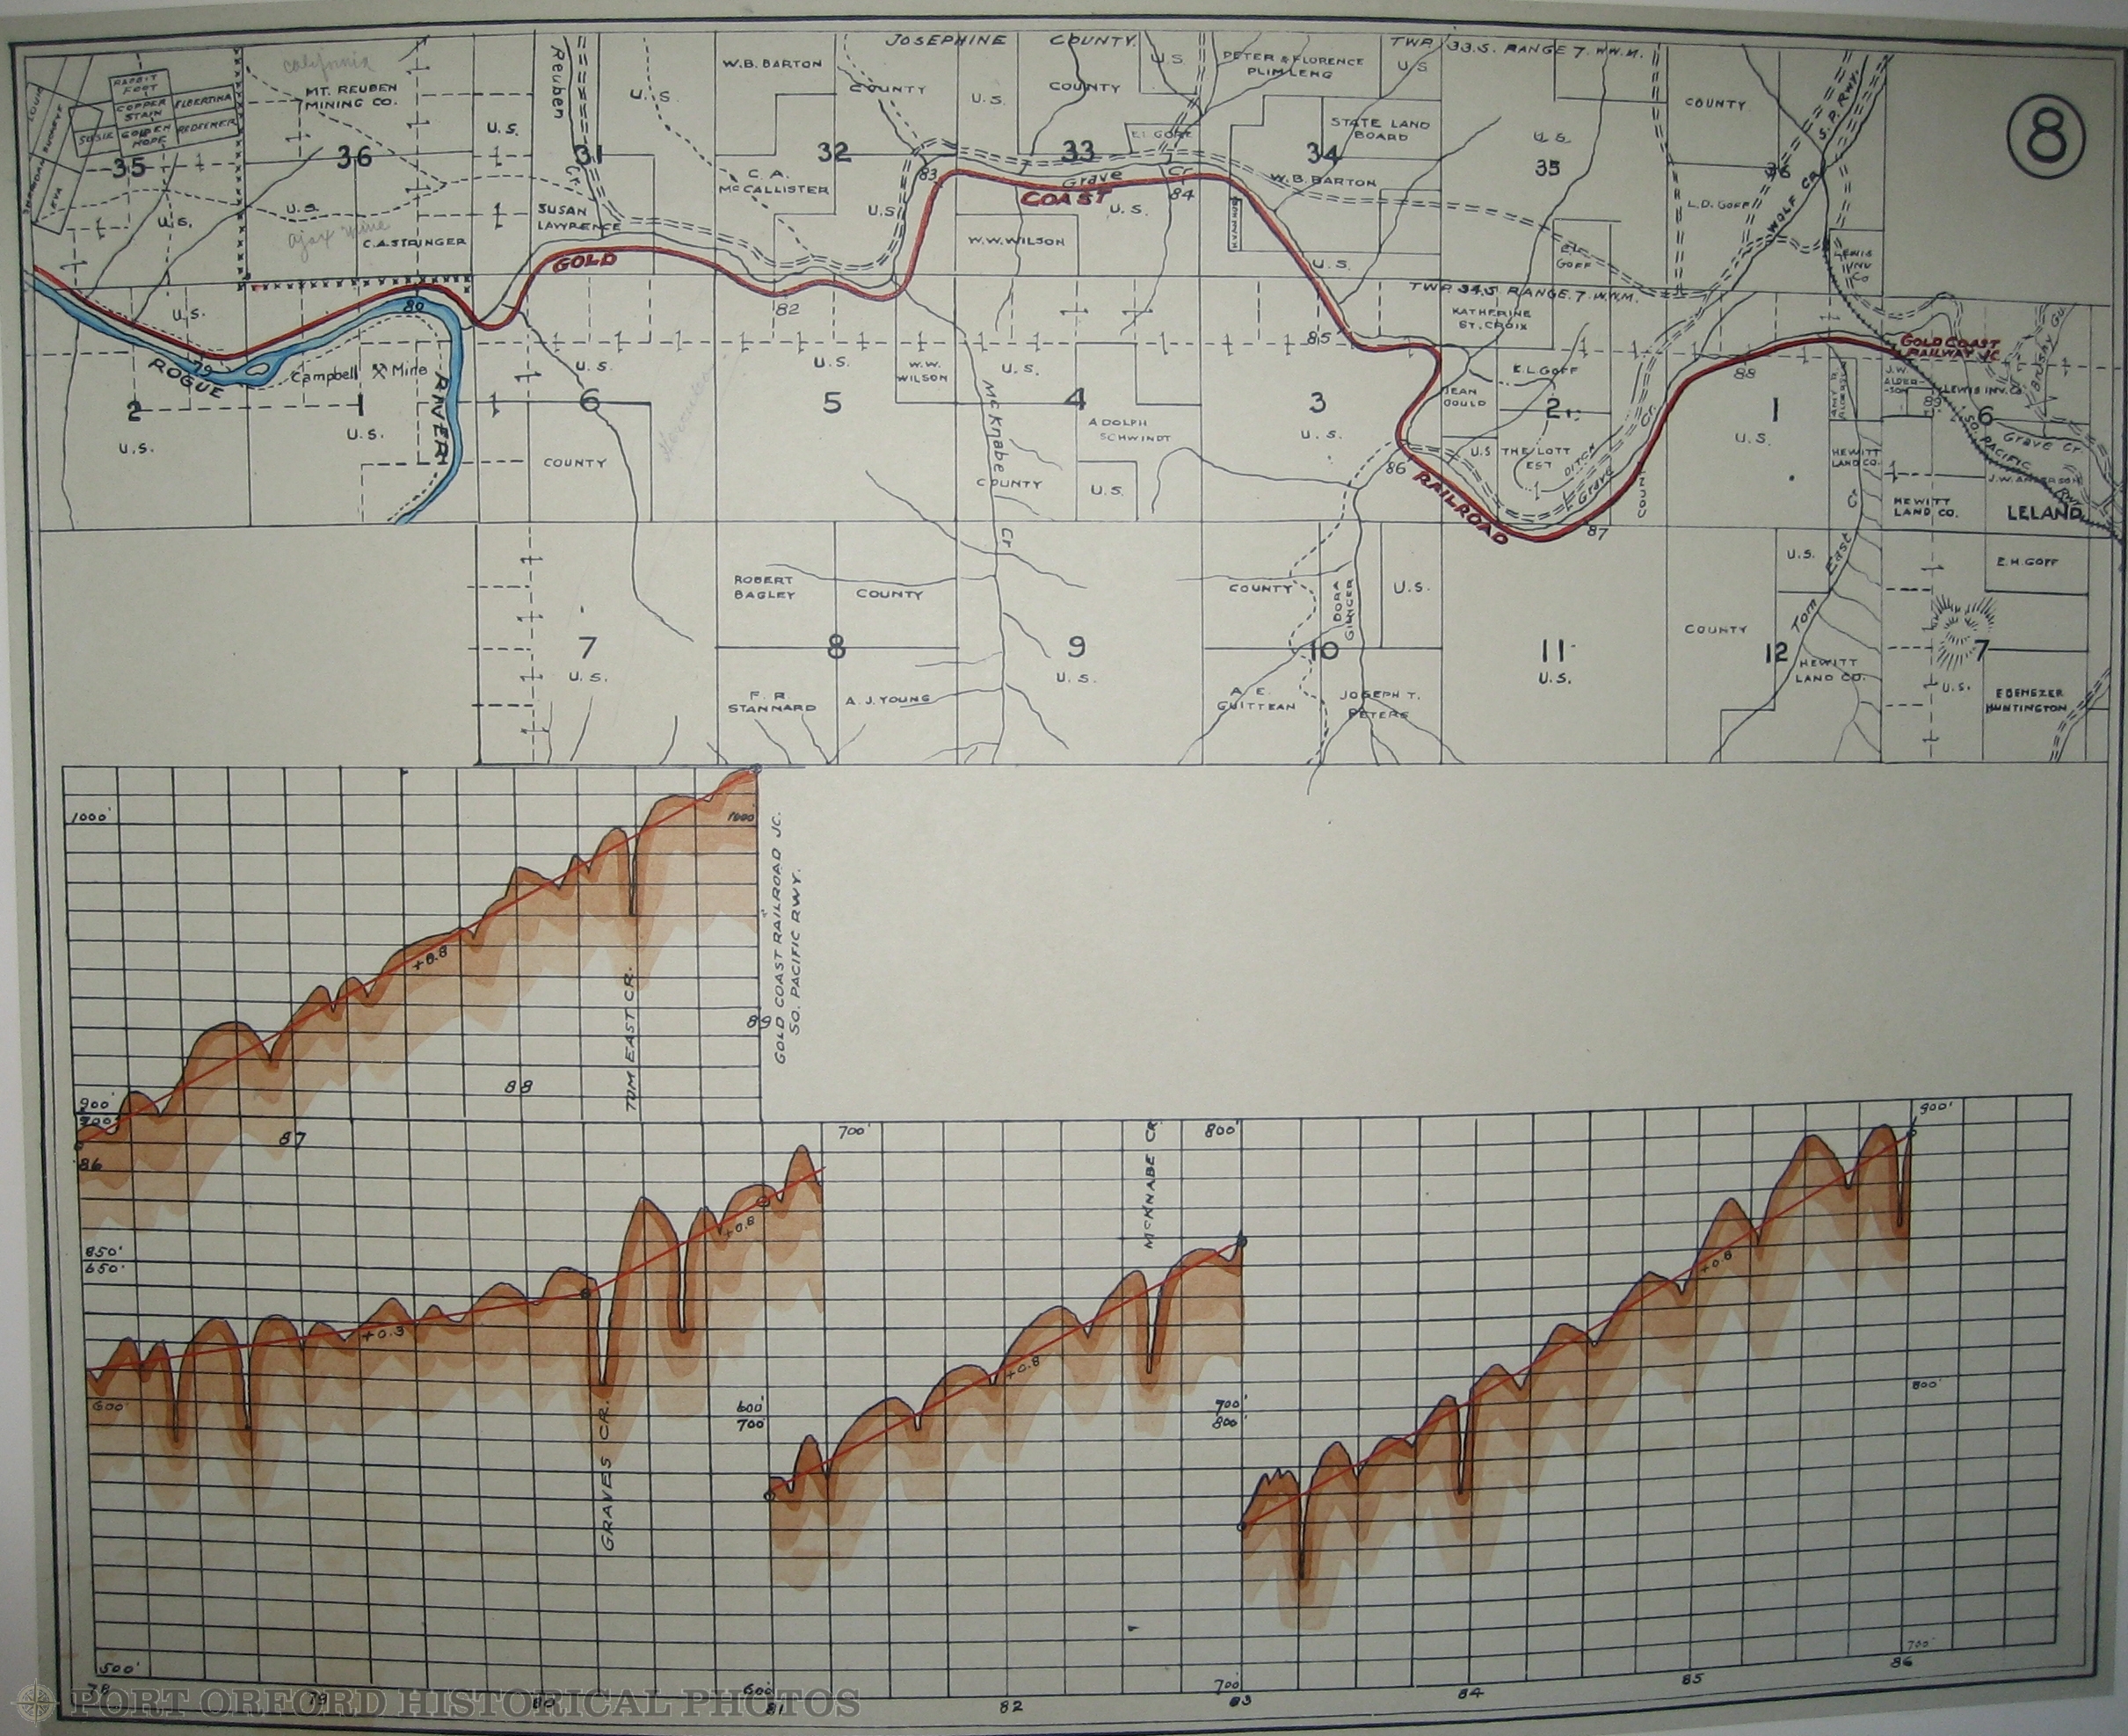 JOSEPHINE COUNTY.
TWP. 33.S. RANGE 7. W.W.M.
8
california
MT. REUBEN
MINING CO.
RABBIT
FOOT
COPPER
STAIN
ELBERTINA
SUSIE
GOLDEN
HOPE
REDEEMER
EVA
35
36
31
32
33
34
35
36
Reuben
Cr.
U.S.
W.B. BARTON
COUNTY
U.S.
COUNTY
U.S.
PETER & FLORENCE
PLIMLENG
U.S.
STATE LAND
BOARD
E.L. GOFF
U.S.
COUNTY
S.P. RWY.
WOLF CR.
L.D. GOFF
U.S.
U.S.
U.S.
ajax mine
C.A. STRINGER
SUSAN
LAWRENCE
C.A.
McCALLISTER
U.S.
83
Grave Cr
84
COAST
U.S.
W.B. BARTON
W.W. WILSON
U.S.
E.L.
GOFF
LEWIS
INV.
CO
GOLD
TWP. 34.S. RANGE. 7. W.W.M.
U.S.
80
82
85
KATHERINE
ST. CROIX
GOLD COAST
RAILWAY JC
79
ROGUE
RIVER
Campbell Mine
2
1
U.S.
U.S.
U.S.
6
COUNTY
U.S.
5
W.W.
WILSON
U.S.
4
McKnabe
Cr
COUNTY
ADOLPH
SCHWINDT
U.S.
3
U.S.
86
RAILROAD
JEAN
GOULD
E.L. GOFF
2
U.S.
THE LOTT
EST
DITCH
Grave
Cr.
87
88
1
U.S.
J.W.
ALDER-
SON
LEWIS INV. CO
89
6
Brushy Gu.
Grave Cr
SO. PACIFIC RWY
J.W. ANDERSON
HEWITT
LAND CO.
HEWITT
LAND CO.
LELAND
Tom East Cr
U.S.
E.H. GOFF
7
U.S.
ROBERT
BAGLEY
COUNTY
8
F. R.
STANNARD
A. J. YOUNG
9
U.S.
COUNTY
DORA
GINGER
U.S.
10
A. E.
GUITTEAN
JOSEPH T.
PETERS
11
U.S.
COUNTY
12
HEWITT
LAND CO.
7
U.S.
EBENEZER
HUNTINGTON
1000'
1000'
+0.8
900'
700'
86
87
88
89
TOM EAST CR.
GOLD COAST RAILROAD JC.
SO. PACIFIC RWY.
850'
650'
700'
+0.8
+0.3
600'
600'
700'
GRAVES CR.
500'
78
79
80
600'
81
McKNABE CR.
800'
+0.8
700'
800'
82
700'
83
900'
+0.8
800'
700'
84
85
86
PORT ORFORD HISTORICAL PHOTOS